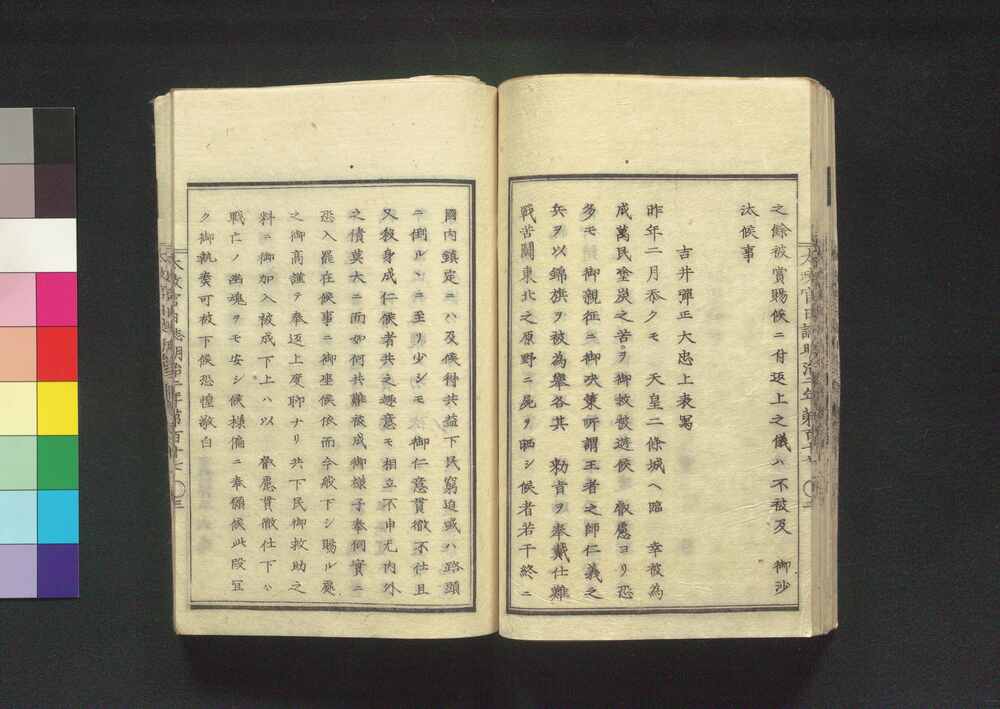 之餘被賞賜候ニ付返上之儀ハ不被及　御沙
汰候事
吉井彈正大忠上表寫
昨年二月忝クモ　天皇二條城ヘ臨　幸被為
成萬民塗炭之苦ヲ御救被遊候　叡慮ヨリ恐
多モ　御親征ニ御决策所謂王者之師仁義之
兵ヲ以錦旗ヲ被為擧各其　勅肯ヲ奉戴仕難
戰苦鬪東北之原野ニ屍ヲ晒シ候者若干終ニ
國内鎮定ニハ及候得共益下民窮迫或ハ路頭
ニ倒ルヽニ至リ少シモ　御仁意貫徹不仕且
又殺身成仁候者共之趣意モ相立不申尤内外
之債莫大ニ而如何共難被成御様子奉伺實ニ
恐入罷在候事ニ御座候依而今般下シ賜ル處
之御高謹テ奉返上度聊ナリ共下民御救助之
料ニ御加入被成下上ハ以　叡慮貫徹仕下ハ
戰亡ノ幽魂ヲモ安シ候様偏ニ奉願候此段宜
ク御執奏可被下候恐惶敬白
太政官日誌明治二年第百廿七